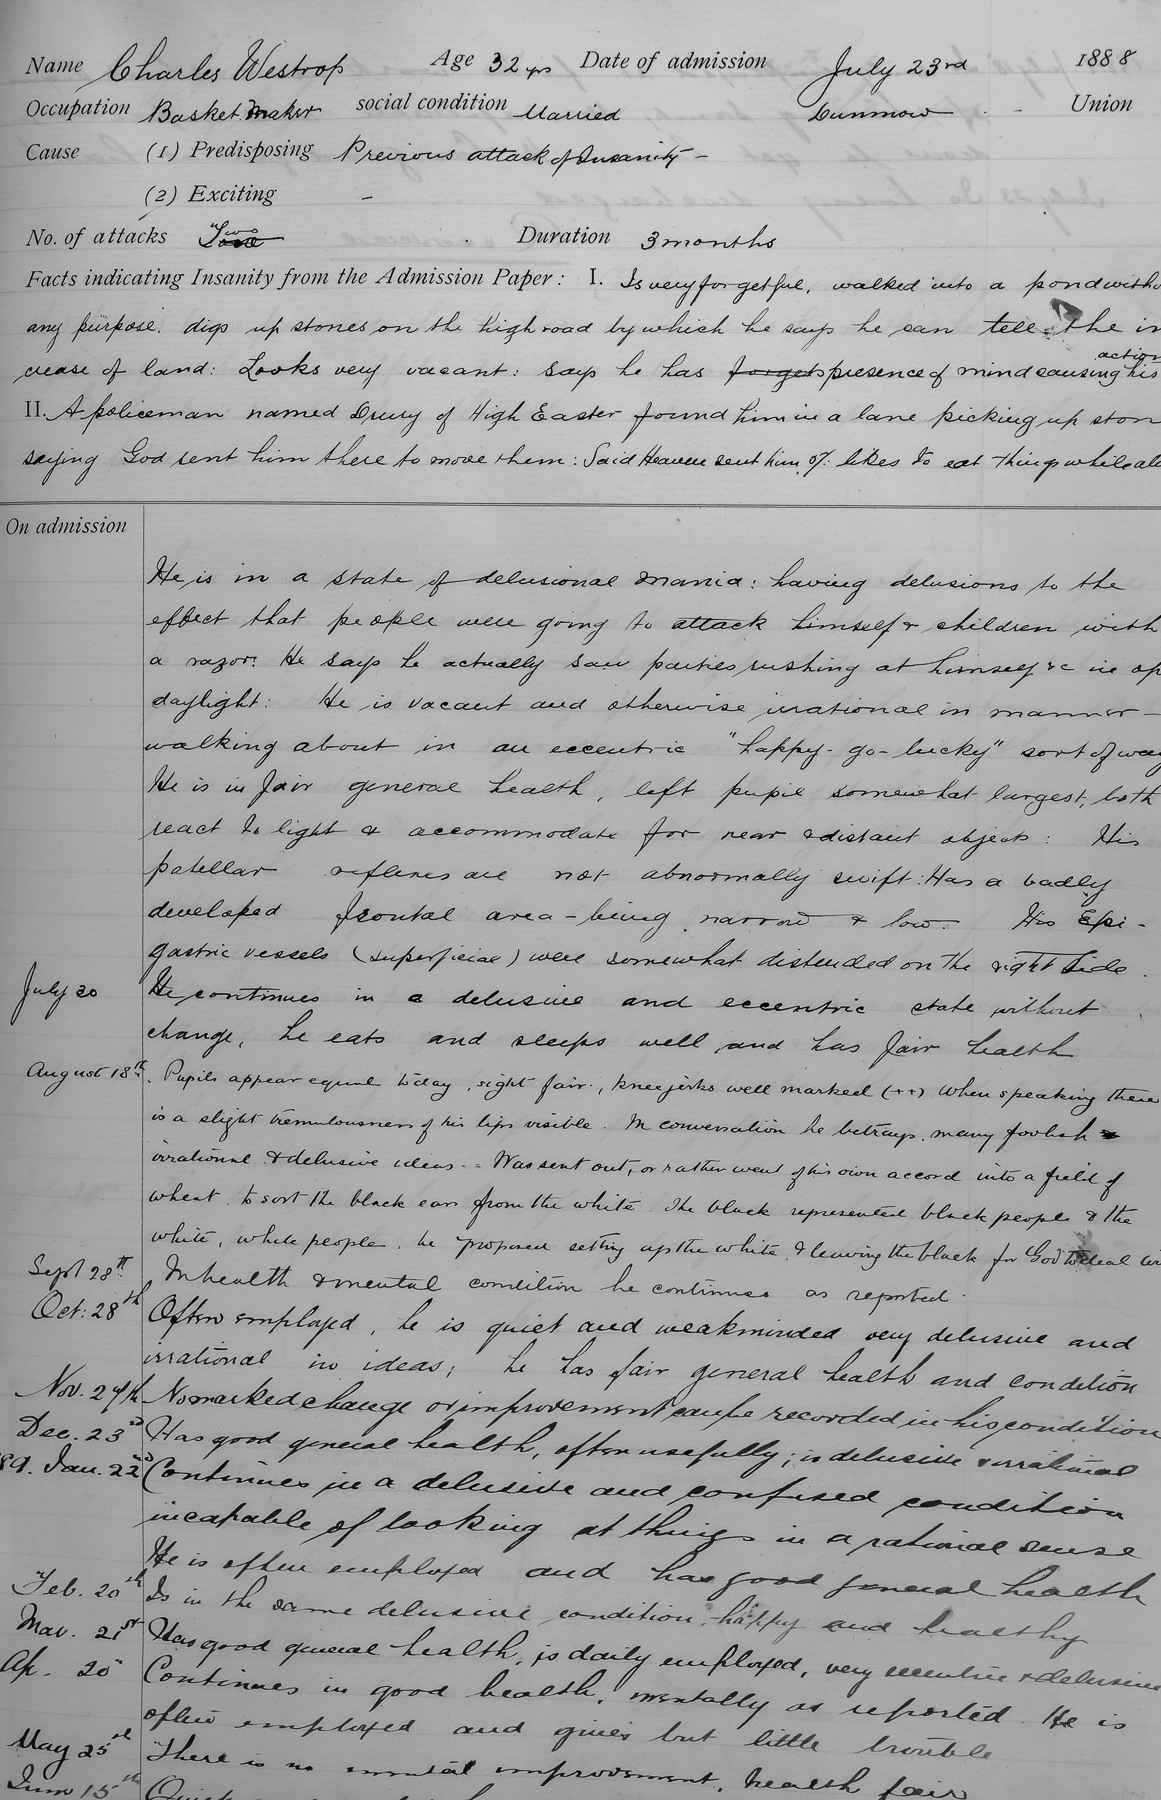 Name Charles Westrop Age 32 yrs Date of admission July 23rd 1888
Occupation Basket Maker social condition Married Dunmow Union
Cause (1) Predisposing Previous attack of Insanity -
(2) Exciting -
No. of attacks Two Duration 3 months
Facts indicating Insanity from the Admission Paper: I. Is very forgetful, walked into a pond witho
any purpose. digs up stones on the high road by which he says he can tell the in
crease of land: Looks very vacant: says he has forgets presence of mind causing his action
II. A policeman named Drury of High Easter found him in a lane picking up ston
saying God sent him there to move them: Said Heaven sent him likes to eat things while ali
On admission
He is in a state of delusional mania: having delusions to the
effect that people were going to attack himself & children with
a razor: He says he actually saw parties rushing at himself &c in op
daylight: He is vacant and otherwise irrational in manner -
walking about in an eccentric "happy-go-lucky" sort of way
He is in fair general health, left pupil somewhat largest, both
react to light & accommodate for near & distant objects: His
patellar reflexes are not abnormally swift: Has a badly
developed frontal area - being narrow & low. His Epi-
gastric vessels (superficial) were somewhat distended on the right side.
July 30 He continues in a delusive and eccentric state without
change, he eats and sleeps well and has fair health
August 18th. Pupils appear equal today, sight fair, knee jerks well marked (++) When speaking there
is a slight tremulousness of his lips visible. In conversation he betrays many foolish
irrational & delusive ideas. Was sent out, or rather went of his own accord into a field of
wheat to sort the black ears from the white. The black represented black people & the
white, white people. he proposed setting up the white & leaving the black for God to deal wi
Sept 28th In health & mental condition he continues as reported.
Oct: 28th Often employed, he is quiet and weakminded very delusive and
irrational in ideas; he has fair general health and condition
Nov. 27th No marked change or improvement can be recorded in his condition
Dec. 23rd Has good general health, often usefully; is delusive & irrational
89. Jan. 22nd Continues in a delusive and confused condition
incapable of looking at things in a rational sense
He is often employed and has good general health
Feb. 20th Is in the same delusive condition, happy and healthy
Mar. 21st Has good general health, is daily employed, very eccentric & delusive
Ap. 20th Continues in good health, mentally as reported. He is
often employed and gives but little trouble
May 25th There is no mental improvement, health fair
June 15th